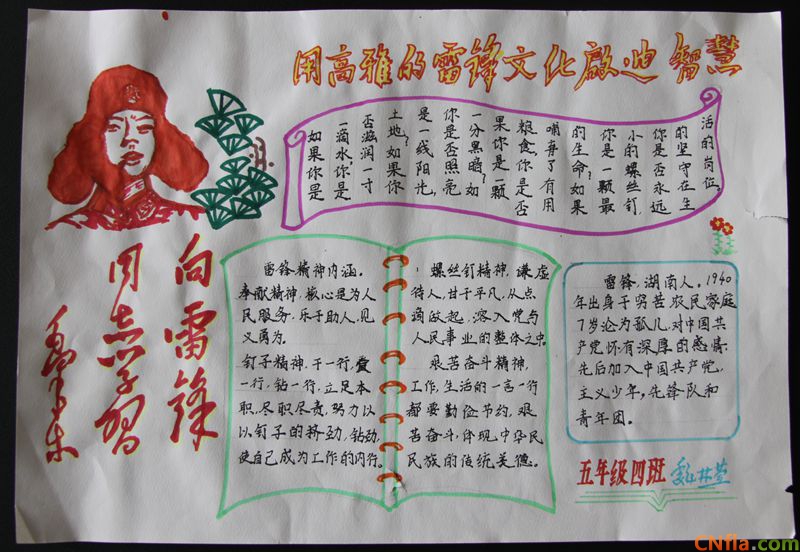 用高雅的雷锋文化啟迪智慧
如果你是
一滴水,你是
否滋润一寸
土地?如果你
是一线阳光,
你是否照亮
一分黑暗?如
果你是一颗
粮食,你是否
哺育了有用
的生命?如果
你是一颗最
小的螺丝钉,
你是否永远
的坚守在生
活的岗位
向雷锋
同志学习
毛泽东
雷锋精神内涵。
奉献精神,核心是为人
民服务,乐于助人,见
义勇为。
钉子精神,干一行,爱
一行,钻一行,立足本
职,尽职尽责,努力以
以钉子的挤劲,钻劲,
使自己成为工作的内行。
螺丝钉精神,谦虚
待人,甘于平凡,从点
滴做起,溶入党与
人民事业的整体之中.
艰苦奋斗精神,
工作,生活的一言一行
都要勤俭节约,艰
苦奋斗,体现中华民
民族的传统美德。
雷锋,湖南人。1940
年出身于贫苦农民家庭
7岁沦为孤儿,对中国共
产党怀有深厚的感情.
先后加入中国共产党,
主义少年,先锋队和
青年团。
五年级四班
CNfla.com